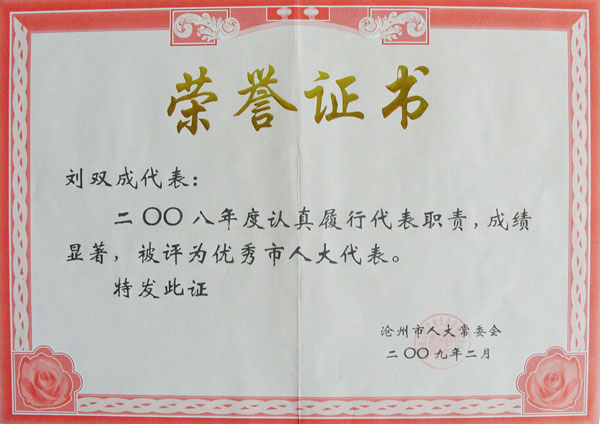 荣誉证书
刘双成代表：
二〇〇八年度认真履行代表职责，成绩
显著，被评为优秀市人大代表。
特发此证
沧州市人大常委会
二〇〇九年二月